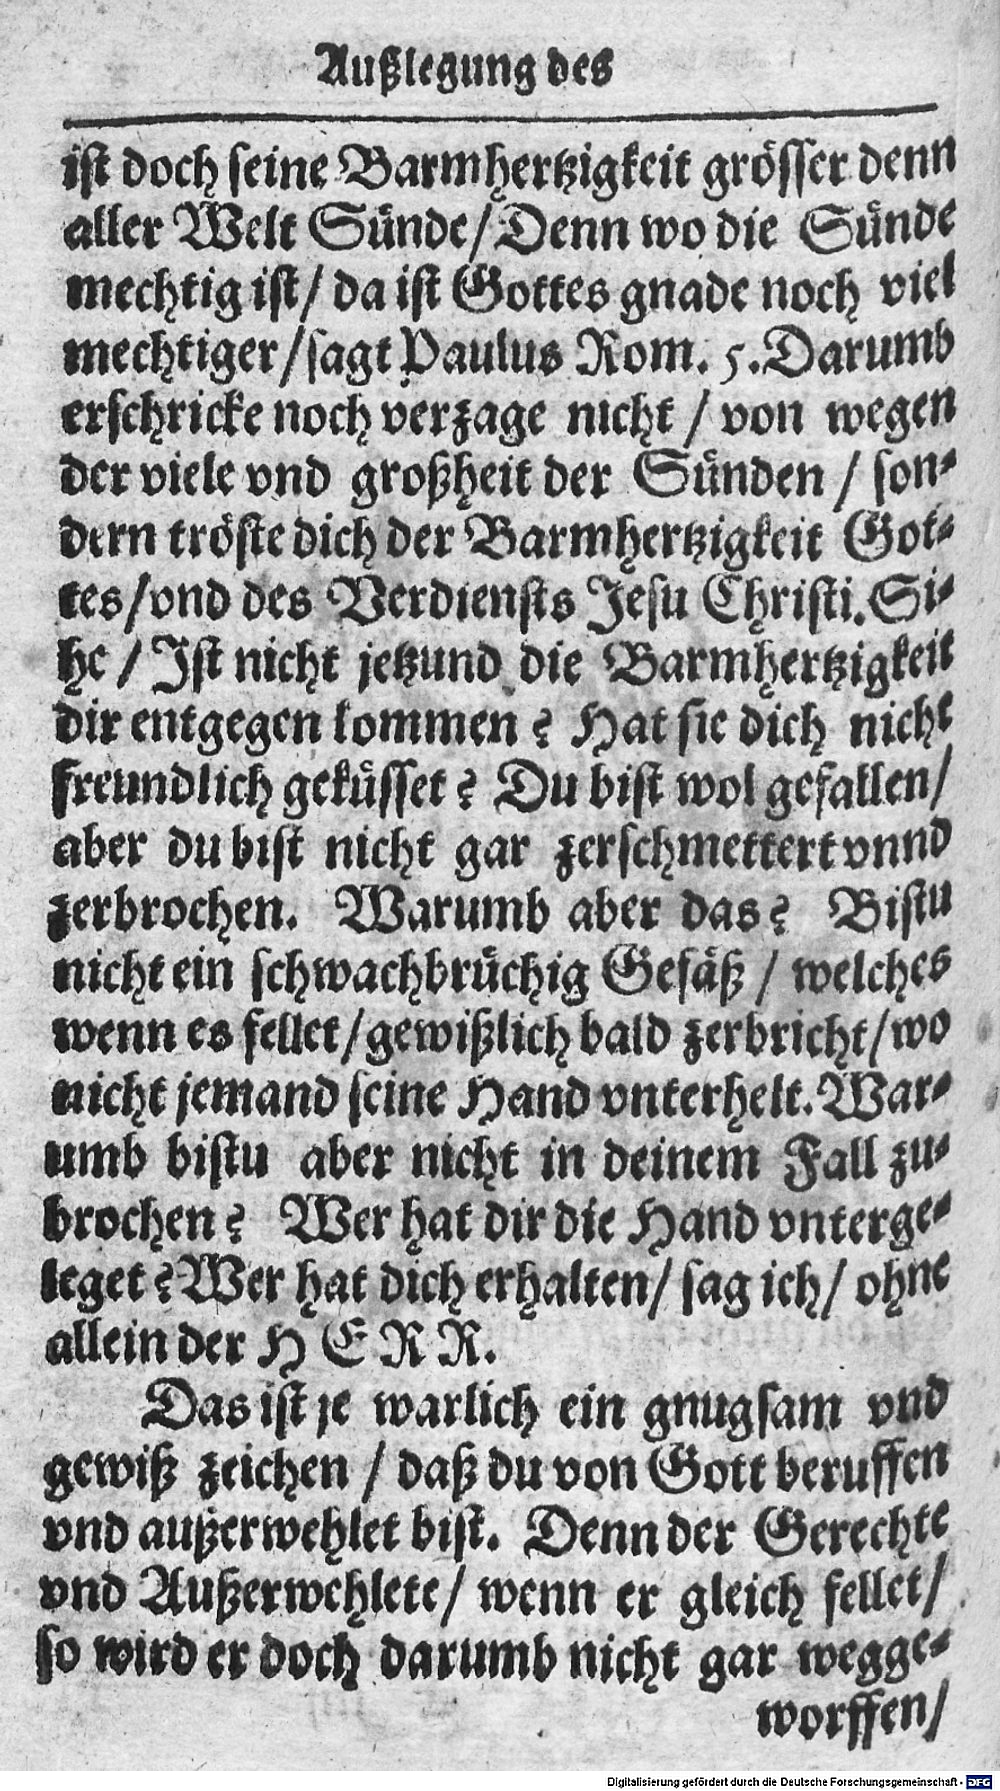 Außlegung des
ist doch seine Barmhertzigkeit grösser denn
aller Welt Sünde/ Denn wo die Sünde
mechtig ist/ da ist Gottes gnade noch viel
mechtiger/sagt Paulus Rom. 5. Darumb
erschricke noch verzage nicht / von wegen
der viele vnd großheit der Sünden / son-
dern tröste dich der Barmhertzigkeit Got-
tes/vnd des Verdiensts Jesu Christi. Si-
he / Ist nicht jetzund die Barmhertzigkeit
dir entgegen kommen? Hat sie dich nicht
freundlich geküsset? Du bist wol gefallen/
aber du bist nicht gar zerschmettert vnnd
zerbrochen. Warumb aber das? Bistu
nicht ein schwachbrüchig Gefäß / welches
wenn es fellet/gewißlich bald zerbricht/wo
nicht jemand seine Hand vnterhelt. War-
umb bistu aber nicht in deinem Fall zu-
brochen? Wer hat dir die Hand vnterge-
leget? Wer hat dich erhalten/ sag ich/ ohne
allein der HERR.
Das ist je warlich ein gnugsam vnd
gewiß zeichen / daß du von Gott beruffen
vnd außerwehlet bist. Denn der Gerechte
vnd Außerwehlete/ wenn er gleich fellet/
so wird er doch darumb nicht gar wegge-
worffen/
Digitalisierung gefördert durch die Deutsche Forschungsgemeinschaft - DFG